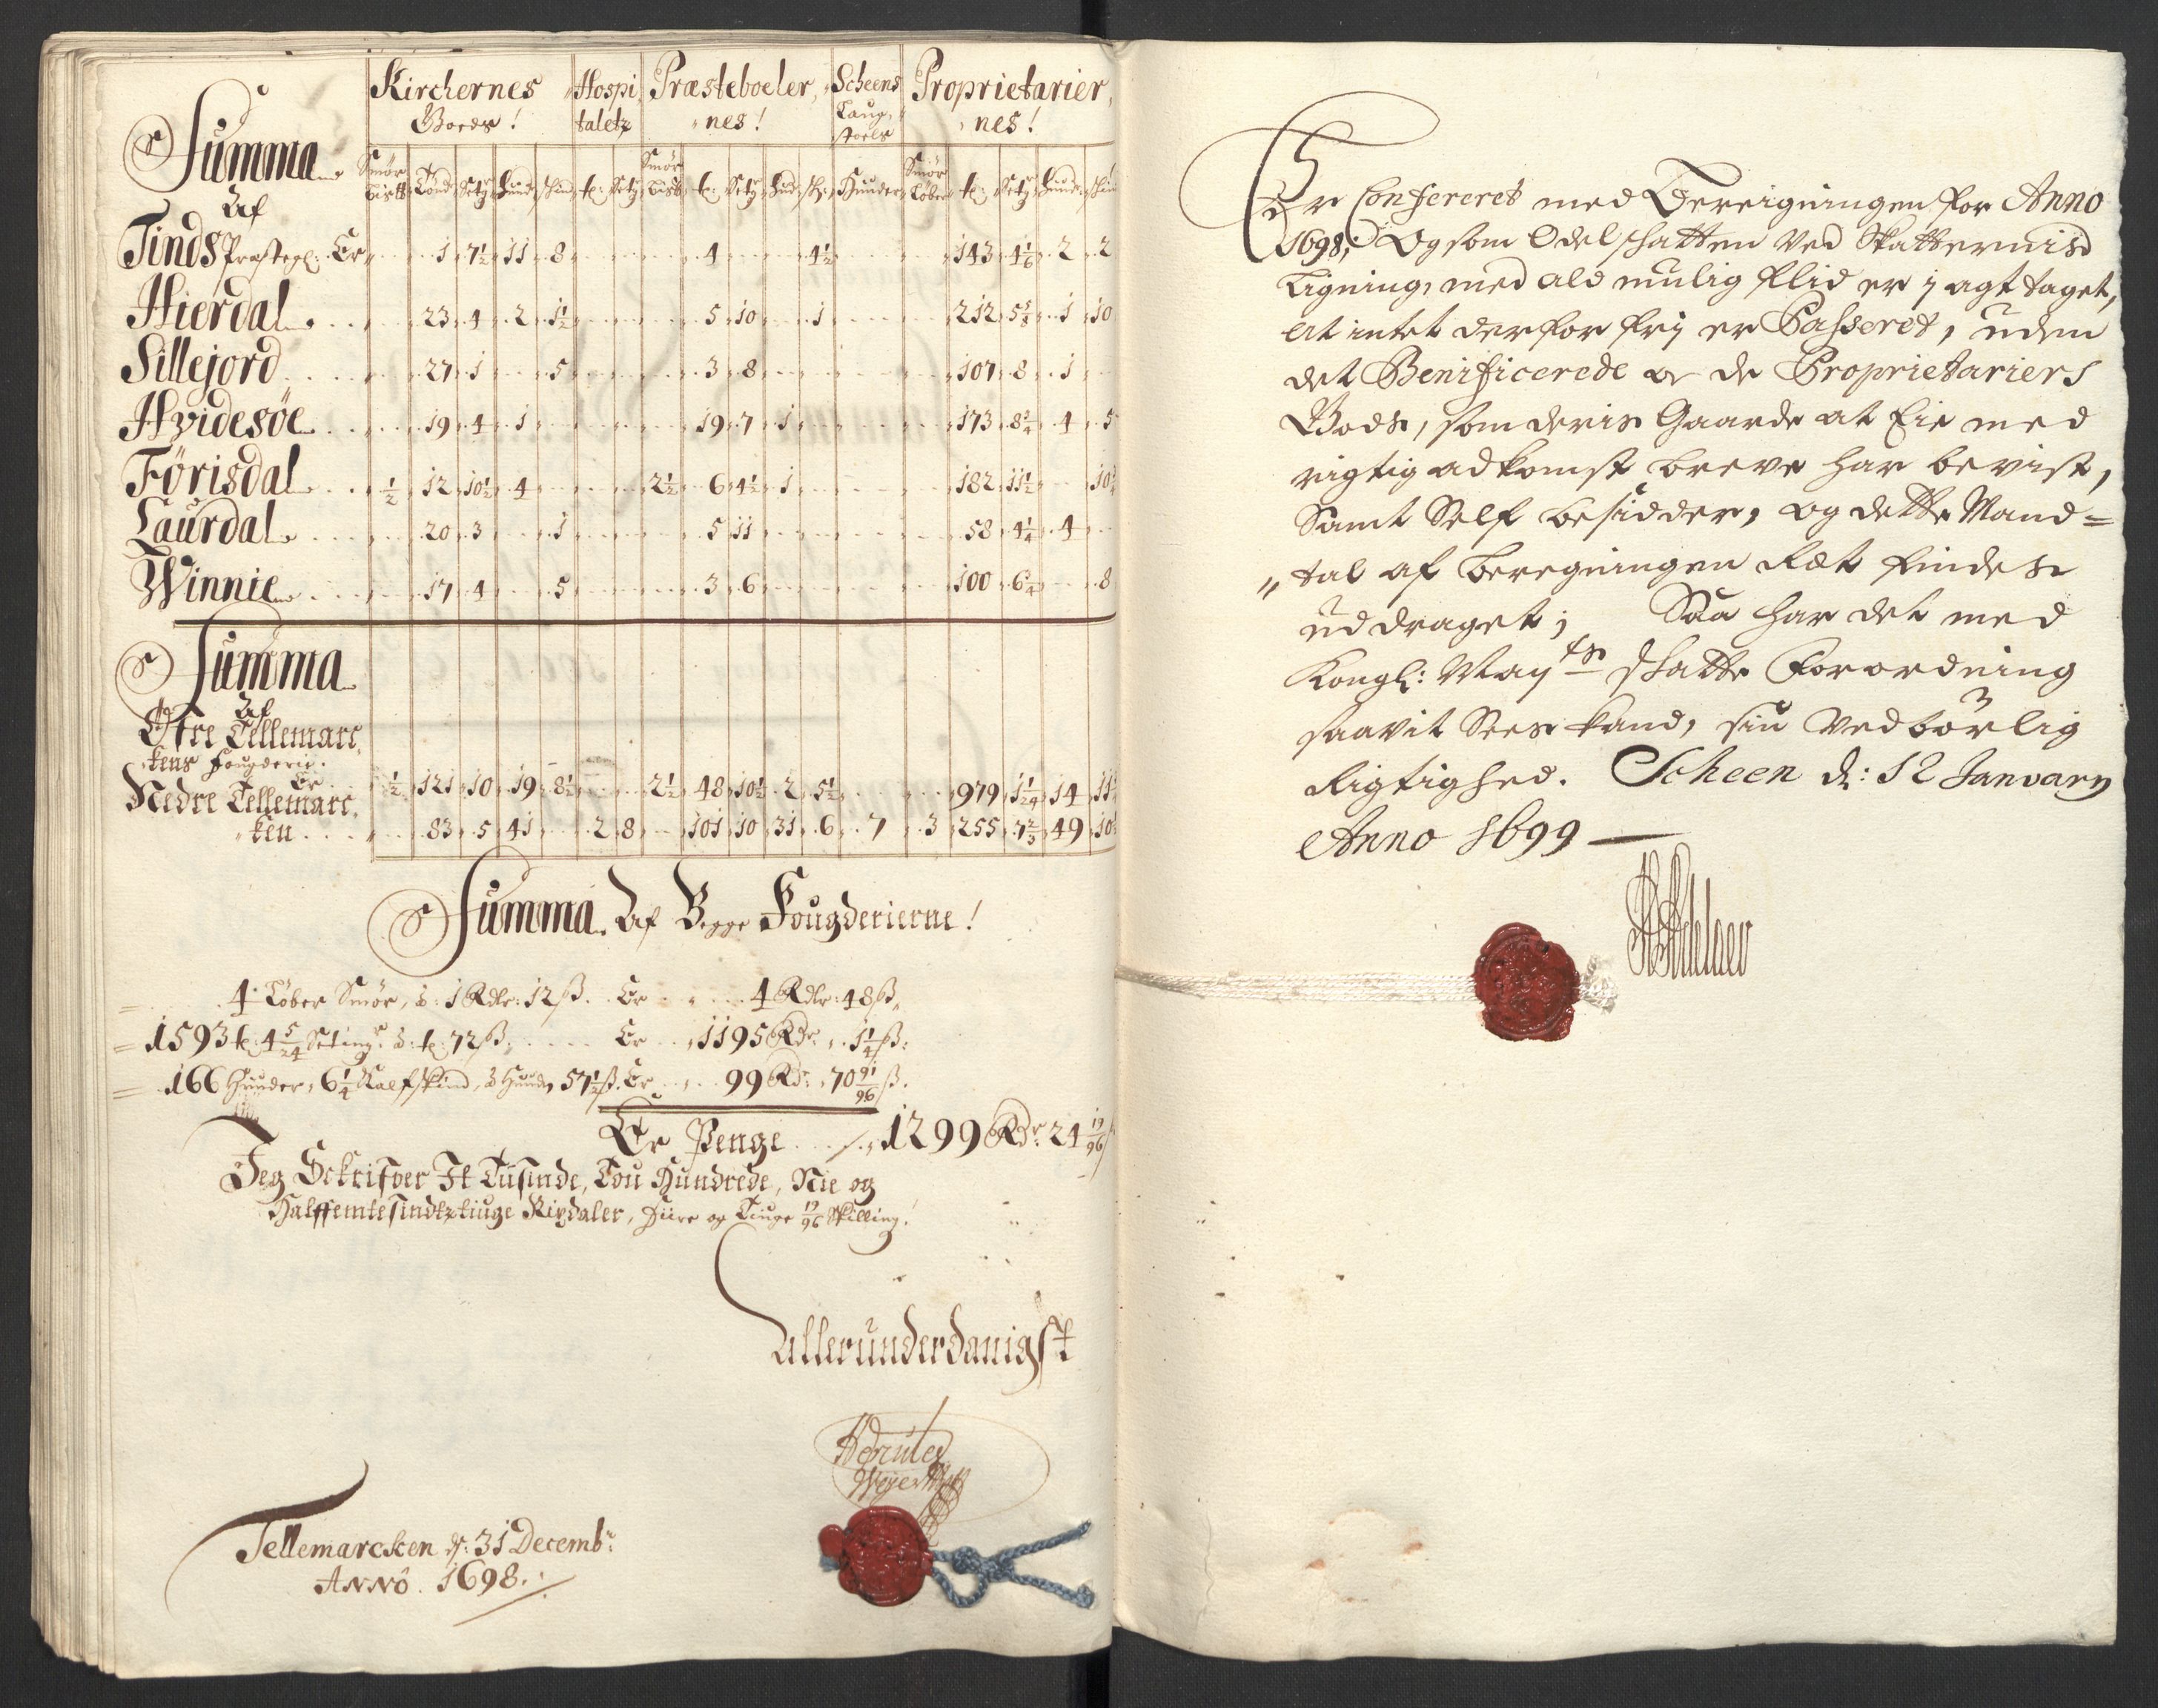 Kirchernes Hospi Præsteboeler, Scheens Proprietarier,
Goeds! taletz nes! Laug, nes!
stoels
Summa Smör Smör Smör
bisk Tönd Setg hund skin t: Setg bisb t: Setg hud sk: Hunder Løber t: Setg hund: skin
Af
Tinds Prestegl: Er 1 7½ 11 8 4 4½ 143 4⅙ 2 2
Hierdal 23 4 2 1½ 5 10 1 212 5⅚ 1 10
Sillejord 27 1 5 3 8 107 8 1
Hvidesöe 19 4 1 19 7 1 173 8¾ 4 5
Förisdal ½ 12 10½ 4 2½ 6 4½ 1 182 11½ 10
Laurdal 20 3 1 5 11 58 4¼ 4
Winnie 17 4 5 3 6 100 6¼ 8
Summa
Af
Öfre Tellemarc
kens Fougderie.
Er ½ 121 10 19 8½ 2½ 48 10½ 2 5½ 979 1 1/24 14 11
Nedre Tellemarc
ken 83 5 41 2 8 101 10 31 6 7 3 255 7⅔ 49 10
Summa Af Begge Fougderierne!
4 Löber Smör, à: 1 Rdlr: 12 ß. Er 4 Rdlr: 48 ß
1593 t: 4 5/24 Seting: à: t: 72 ß, Er 1195 Rdr 1¼ ß:
166 Huuder, 6¼ Kalfskind, à Hund 57½ ß. Er 99 Rdr 70 91/96 ß.
Er Penge 1299 Rdr 24 19/96 ß
Jeg Schrifver It Tusinde, Tou Hundrede, Nie og
Halffemtesindtztiuge Rixdaler, Fiire og Tiuge 19/96 Skilling!
Allerunderdanigst
Tellemarcken d: 31 Decembr:
Anno. 1698.
Er Confereret med Bereigningen for Anno
1698; Og som Odelschatten Ved Skatternis
Ligning, med ald muulig flid er i agt taget,
At intet derfor frij er Passeret, uden
det Benificerede og de Proprietariers
Gods, som deris Gaarde at Eie med
rigtig adkomst breve har bevist,
Samt Self besidder, og dette Mand=
"tal af beregningen Ræt findes
uddraget; Saa har det med
Kongl: May:ts Skatte Forordning
saavit Sees kand, sin Vedbörlig
Rigtighed. Scheen d: 12 January
Anno 1699